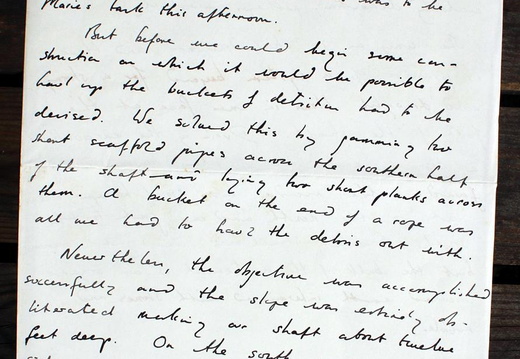 was to be
Marie's task this afternoon.
But before we could begin some con-
struction on which it would be possible to
haul up the buckets of detritus had to be
devised. We solved this by jamming two
short scaffold pipes across the southern half
of the shaft and laying two short planks across
them. A bucket on the end of a rope was
all we had to haul the debris out with.
Nevertheless, the objective was accomplished
successfully and the slope was entirely ob-
literated making our shaft about twelve
feet deep. On the south